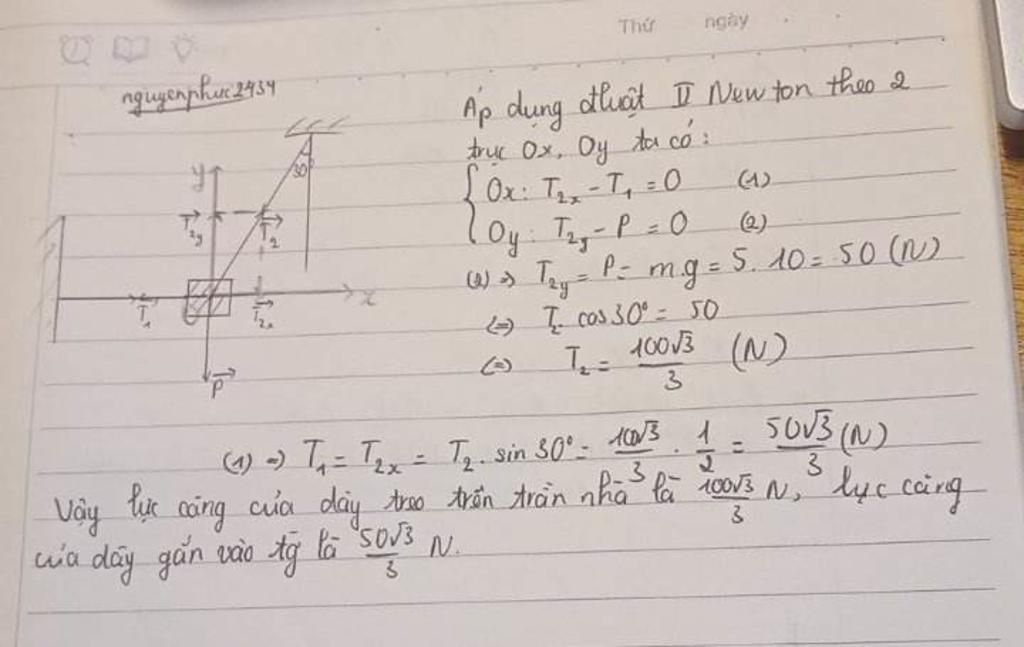 Thứ ngày
nguyenphuc2434
Áp dụng đluật II Newton theo 2
trục Ox, Oy ta có:
Ox: T₂ₓ - T₁ = 0 (1)
Oy: T₂y - P = 0 (2)
(2) => T₂y = P = m.g = 5.10 = 50 (N)
(=) T₂ cos30° = 50
(=) T₂ = 100√3/3 (N)
y
30
T₂y
T₂
T₁
T₂ₓ
x
P
(1) => T₁ = T₂ₓ = T₂. sin 30° = 100√3/3 . 1/2 = 50√3/3 (N)
Vậy lực căng của dây treo trên trần nhà là 100√3/3 N, lực căng
của dây gắn vào tg là 50√3/3 N.